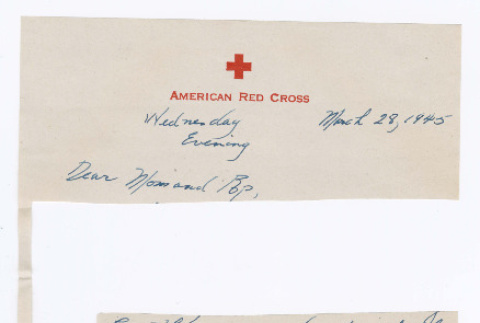 AMERICAN RED CROSS
Wednesday March 28, 1945
Evening
Dear Mom and Pop,